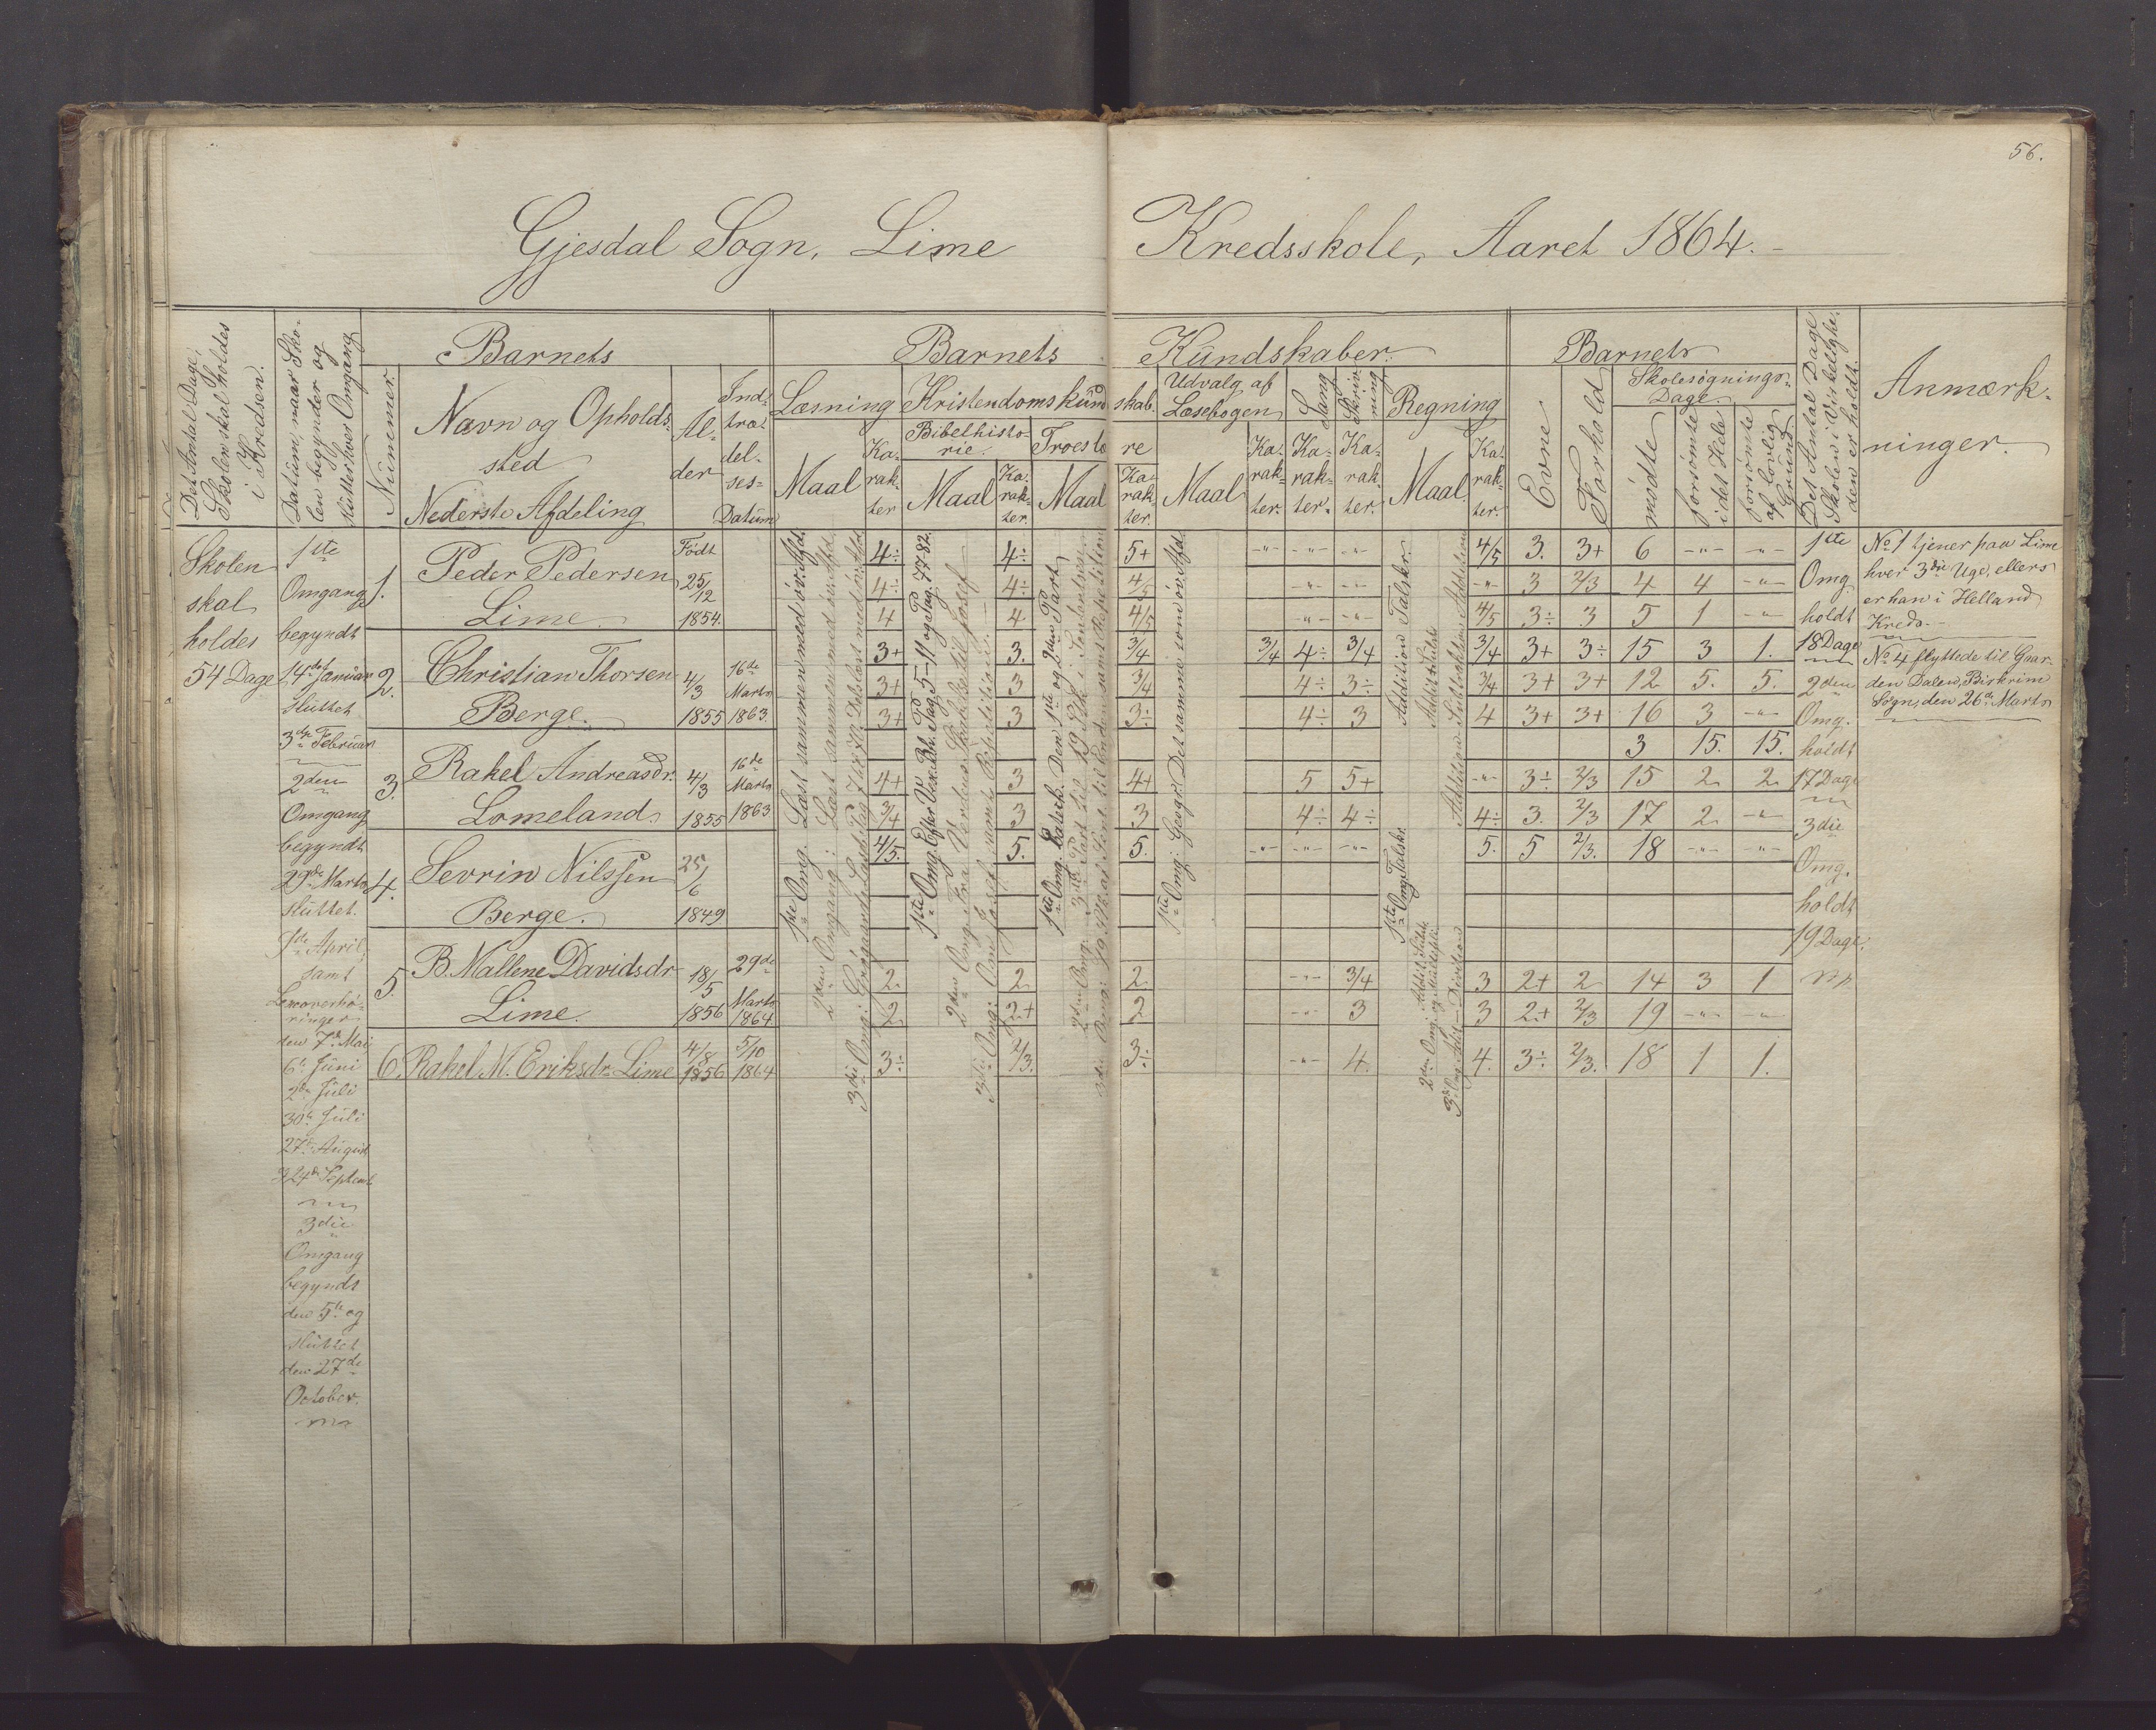 56.
Gjesdal Sogn, Lime Kredsskole, Aaret 1864.
Det Antal Dage,
Skolen skal holdes
i Kredsen.
Datum, naar Sko-
len begynder og
slutter hver Omgang
Barnets
Nummer.
Navn og Opholds-
sted
Nederste Afdeling
Al-
der
Ind-
træ-
del-
ses-
Datum
Barnets Kundskaber.
Læsning
Maal
Ka-
rak-
ter
Kristendomskund skab.
Bibelhisto-
rie.
Maal
Ka-
rak-
ter.
Troeslæ re
Maal
Ka-
rak-
ter.
Udvalg af
Læsebogen
Maal
Ka-
rak-
ter.
Sang
Ka-
rak-
ter.
Skriv-
ning
Ka-
rak-
ter.
Regning
Maal.
Ka-
rak-
ter.
Barnets
Evne
Forhold
Skolesøgnings-
Dage.
mødte
forsømte
i det Hele
forsømte
af lovlig
Grund.
Det Antal Dage
Skolen i Virkelighe-
den er holdt.
Anmærk-
ninger.
Skolen
skal
holdes
54 Dage
1ste
Omgang
begyndt
14de Januar
sluttet
3die Februar
2den
Omgang
begyndt
29de Marts
sluttet
April,
samt
den 7de Mai
6te Juni
2den Juli
30te Juli
27de August
24de Septemb.
3die
Omgang
begyndt
den 5te og
sluttet
den 27de
October.
1. Peder Pedersen
Lime.
Født
25/12
1854.
2. Christian Thorsen
Berge.
4/3
1855
16de
Marts
1863.
3. Rakel Andreasdr.
Lomeland.
4/3
1855
16de
Marts
1863
4. Sevrin Nilssen
Berge.
25/6
1849
5. B. Mallene Davidsdr
Lime.
18/5
1856
29de
Marts
1864
6. Rakel M. Eriksdr. Lime
4/8
1856
5/10
1864
1ste Omg. Læst sammen med øv. Afd.
2den Omgang: Læst sammen med øv. Afd.
1ste Omg. Efter Vex. Bh. Pag. 5-11 og Pag. 77-82.
1ste Omg. Katech. Den 1ste og 2den Part
1ste Omg: Geogr. Det samme som øv. Afd.
Addition Talskr.
1ste Omg. Talskr.
4÷ 4÷ 5+ -"- -"- -"- 4/5 3. 3+ 6 -"- -"-
4÷ 4÷ 4/5 -"- -"- -"- 3 2/3 4 4 -"-
4 4 4/5 -"- -"- 4/5 3÷ 3 5 1 -"-
3+ 3. 3/4 3/4 4÷ 3/4 3/4 3+ 3÷ 15 3 1.
3+ 3 3/4 4÷ 3÷ 3/4 3+ 3+ 12 5. 5.
3+ 3 3÷ 4÷ 3 4 3+ 3+ 16 3 -"-
3 15. 15.
4+ 3 4+ 5 5+ -"- 3÷ 2/3 15 2 2
3/4 3 3 4÷ 4÷ 4÷ 3. 2/3 17 2 -"-
4/5. 5. 5. -"- -"- -"- 5. 5 2/3. 18 -"- -"-
2. 2 2. -"- 3/4 3 2+ 2 14 3 1
2 2+ 2 -"- 3 3 2+ 2/3 19 -"- -"-
3÷ 2/3. 3÷ -"- 4. 4. 3÷ 2/3. 18 1 1.
1ste
Omg.
holdt
18 Dage
2den
Omg.
holdt
17 Dage
3die
Omg.
holdt
19 Dage.
No 1 tjener paa Lime
hver 3die Uge, ellers
er han i Helland
Kreds.
No 4 flyttede til Gaar-
den Dalen, Birkrim
Sogn, den 26de Marts